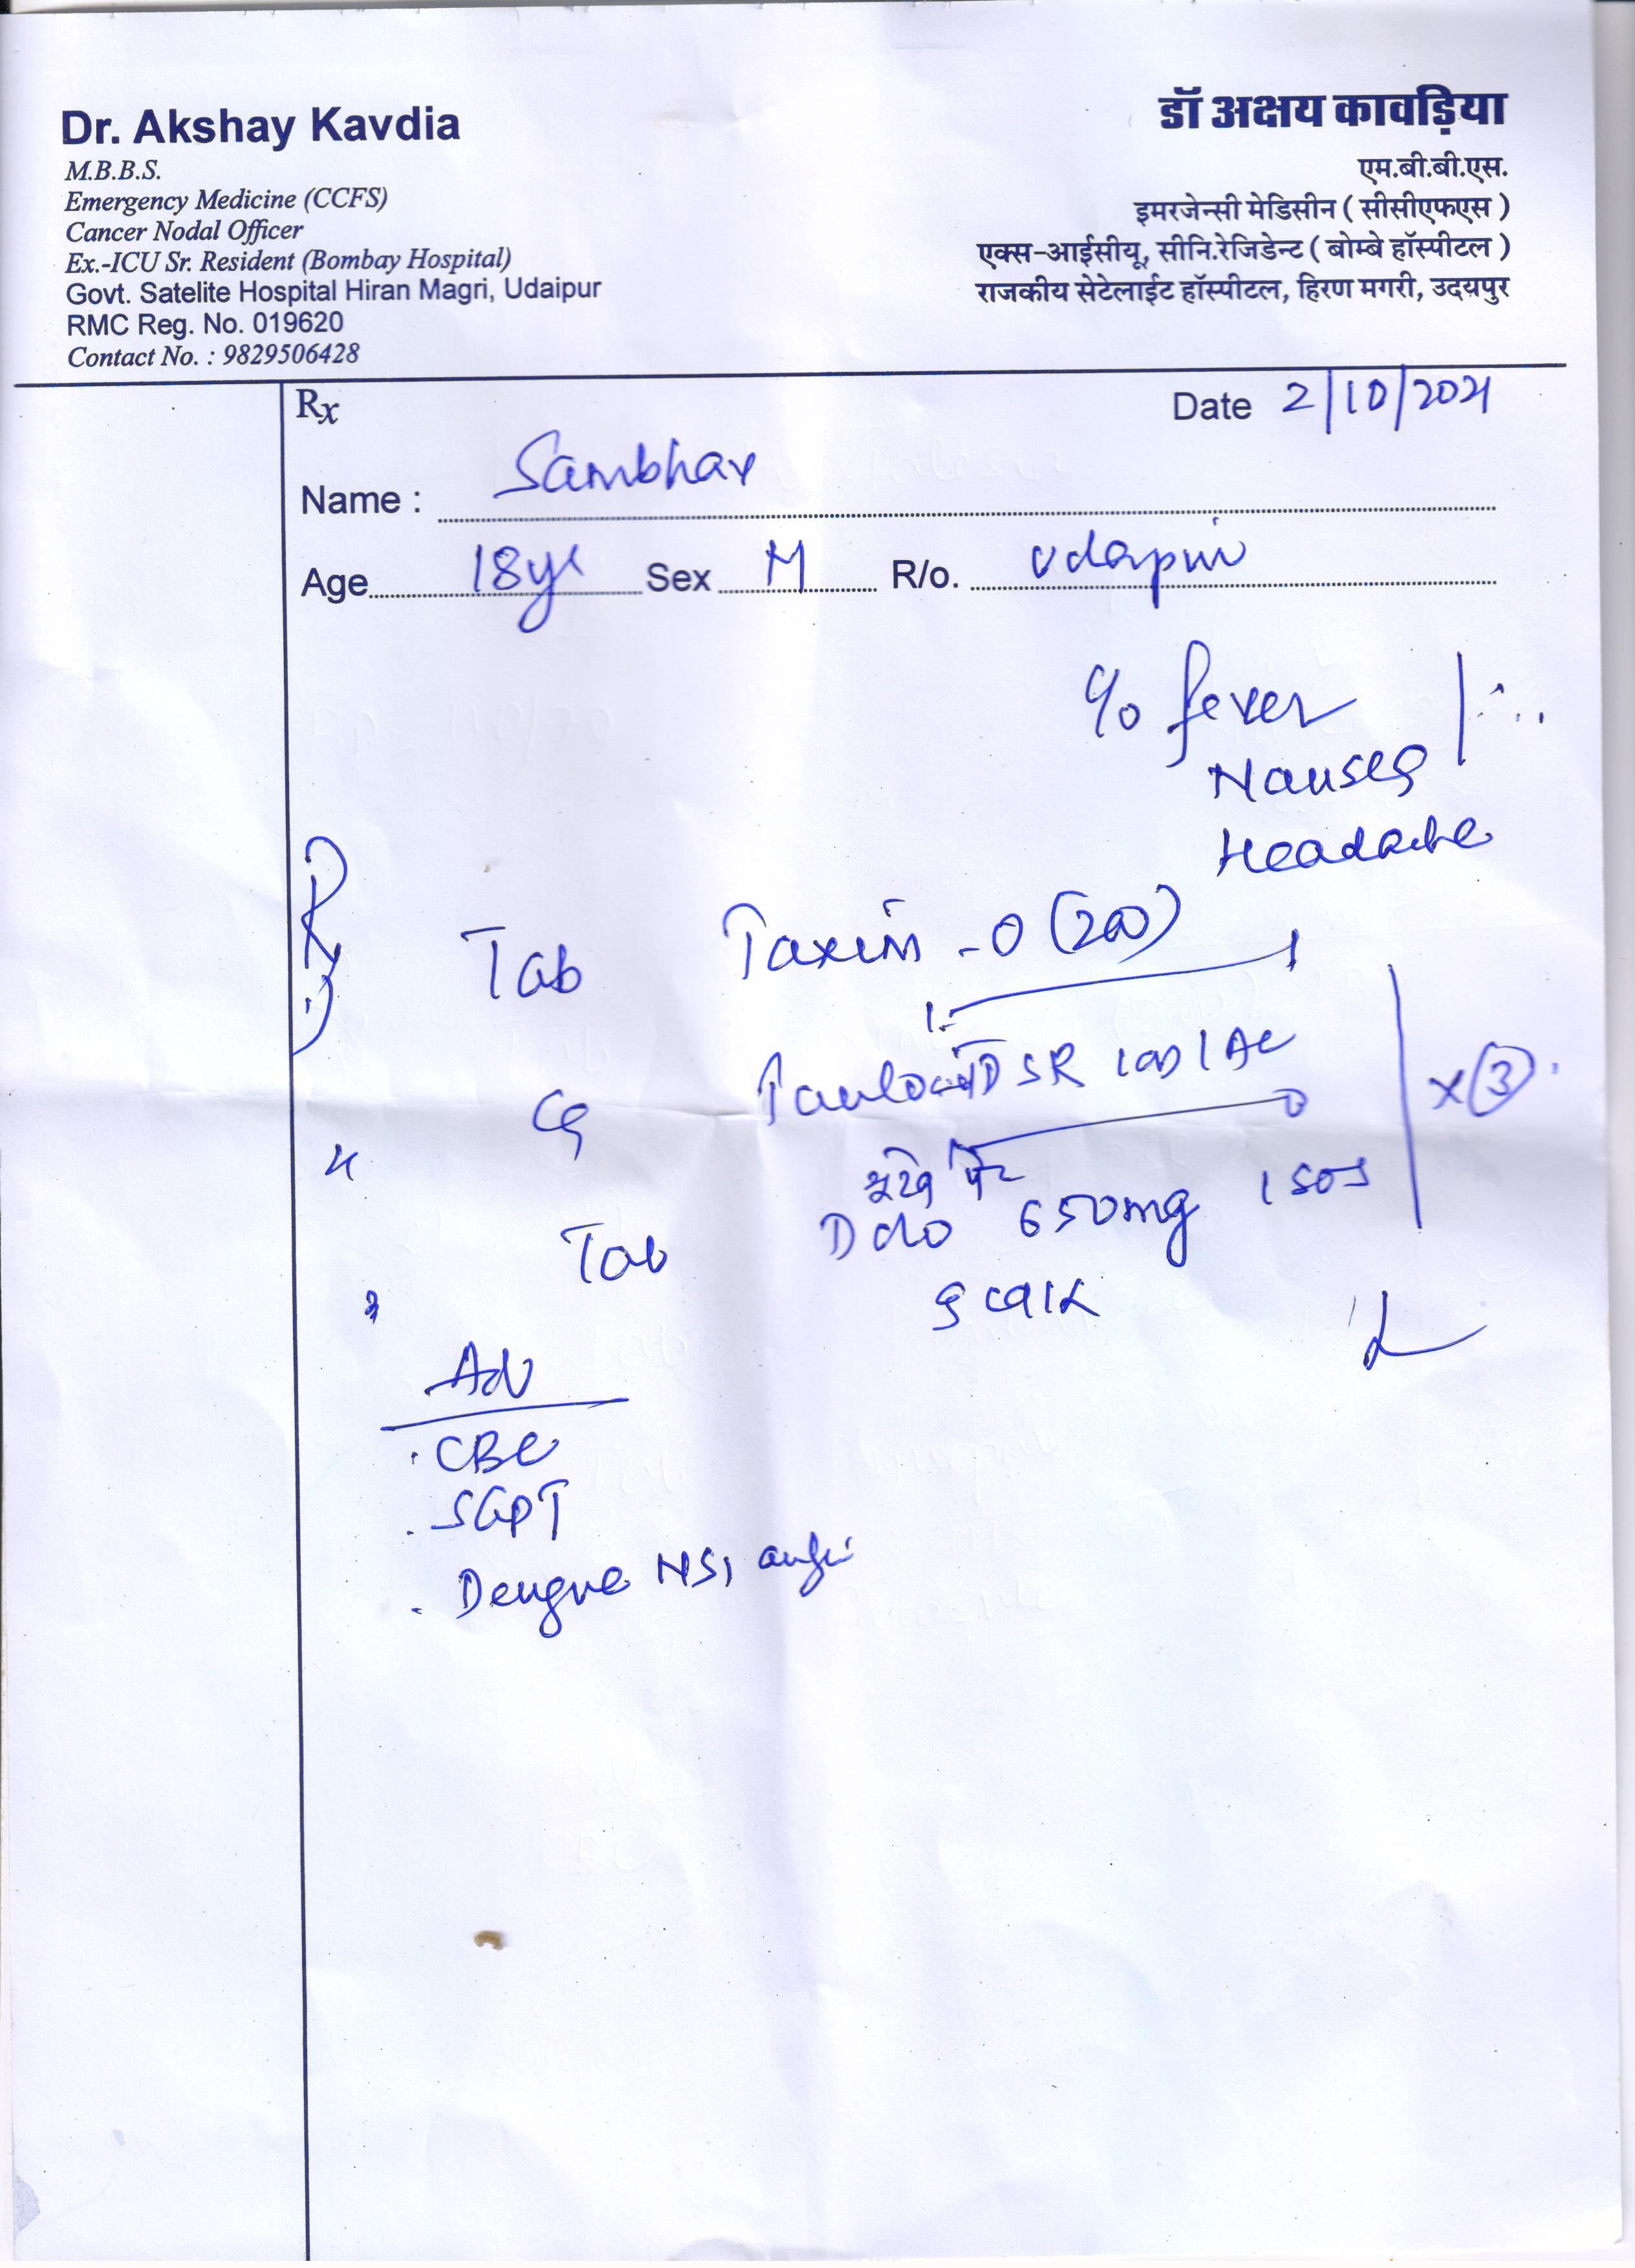 Dr. Akshay Kavdia
M.B.B.S.
Emergency Medicine (CCFS)
Cancer Nodal Officer
Ex.-ICU Sr. Resident (Bombay Hospital)
Govt. Satelite Hospital Hiran Magri, Udaipur
RMC Reg. No. 019620
Contact No. : 9829506428
डॉ अक्षय कावड़िया
एम.बी.बी.एस.
इमरजेन्सी मेडिसीन ( सीसीएफएस )
एक्स-आईसीयू, सीनि.रेजिडेन्ट ( बोम्बे हॉस्पीटल )
राजकीय सेटेलाईट हॉस्पीटल, हिरण मगरी, उदयपुर
Rx
Date 2/10/2021
Name : Sambhav
Age 18yr Sex M R/o. Udaipur
c/o fever
Nausea
Headache
Rx
Tab Taxim-O (200)
1 1
DSR 1 OD 1 AC
x (3)
भूखे पेट
Tab Dolo 650mg 1 SOS
Adv
. CBC
. SGPT
. Dengue NS1